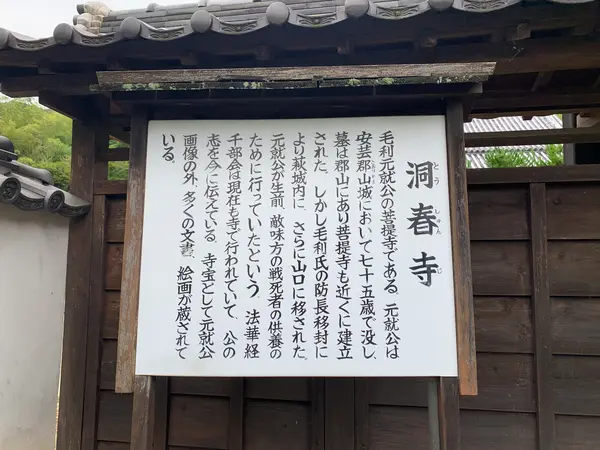 洞春寺
とうしゅんじ
毛利元就公の菩提寺である。元就公は
安芸郡山城において七十五歳で没し、
墓は郡山にあり菩提寺も近くに建立
された。しかし毛利氏の防長移封に
より萩城内に、さらに山口に移された。
元就公が生前、敵味方の戦死者の供養の
ために行っていたという。法華経
千部会は現在も寺で行われていて、公の
志を今に伝えている。寺宝として元就公
画像の外、多くの文書、絵画が蔵されて
いる。